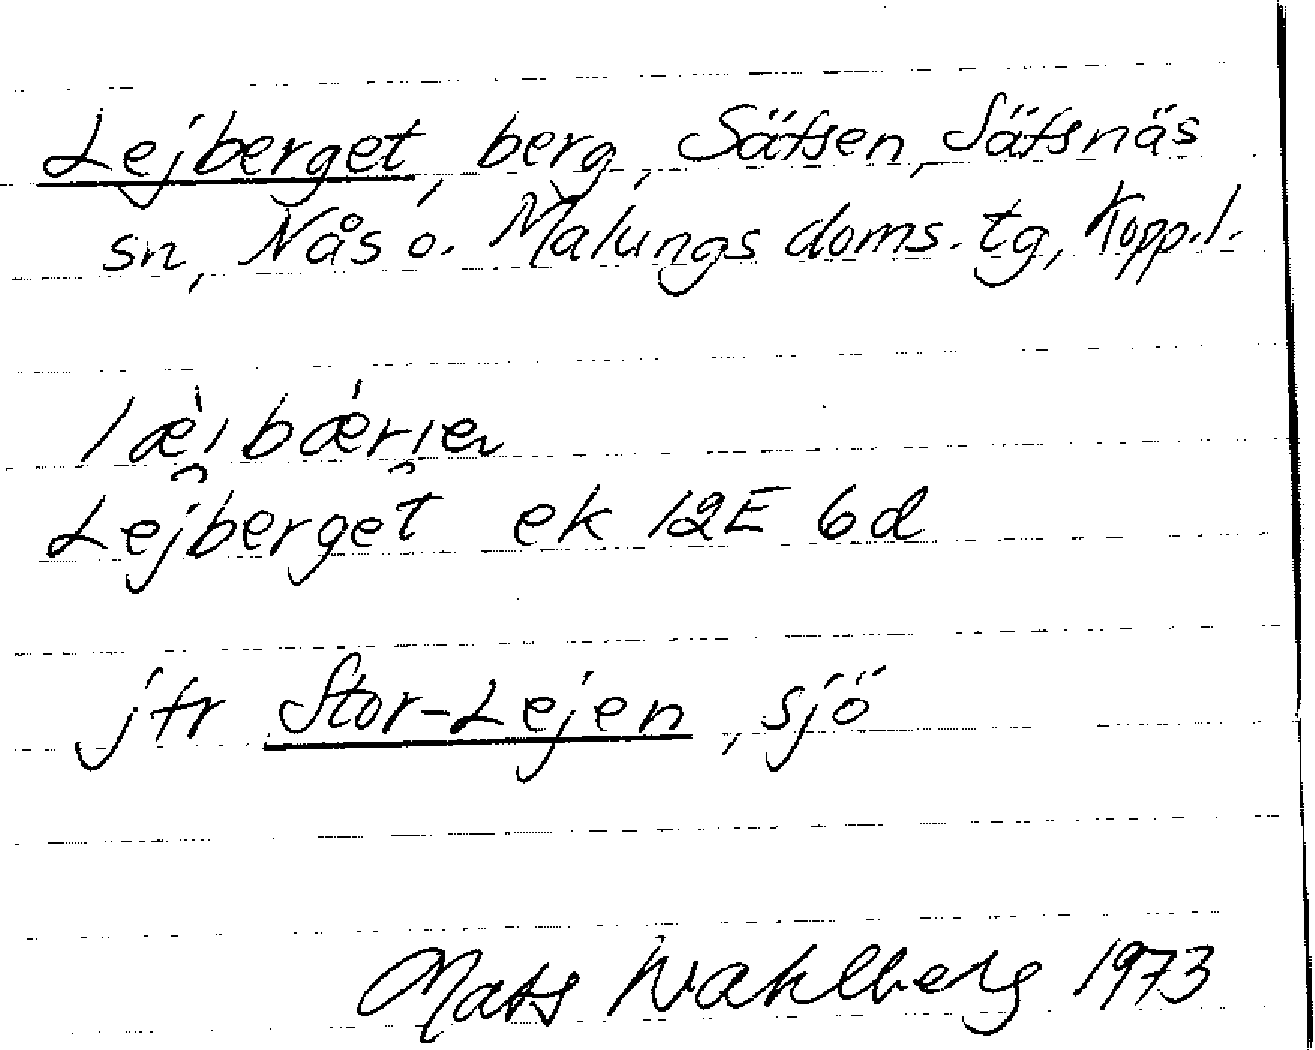 Lejberget, berg, Säfsen, Säfsnäs
sn, Nås o. Malungs doms. tg, Kopp.l.
læ̀i̯bǽri̯en
Lejberget ek 12E 6d
jfr Stor-Lejen, sjö
Mats Wahlberg 1973